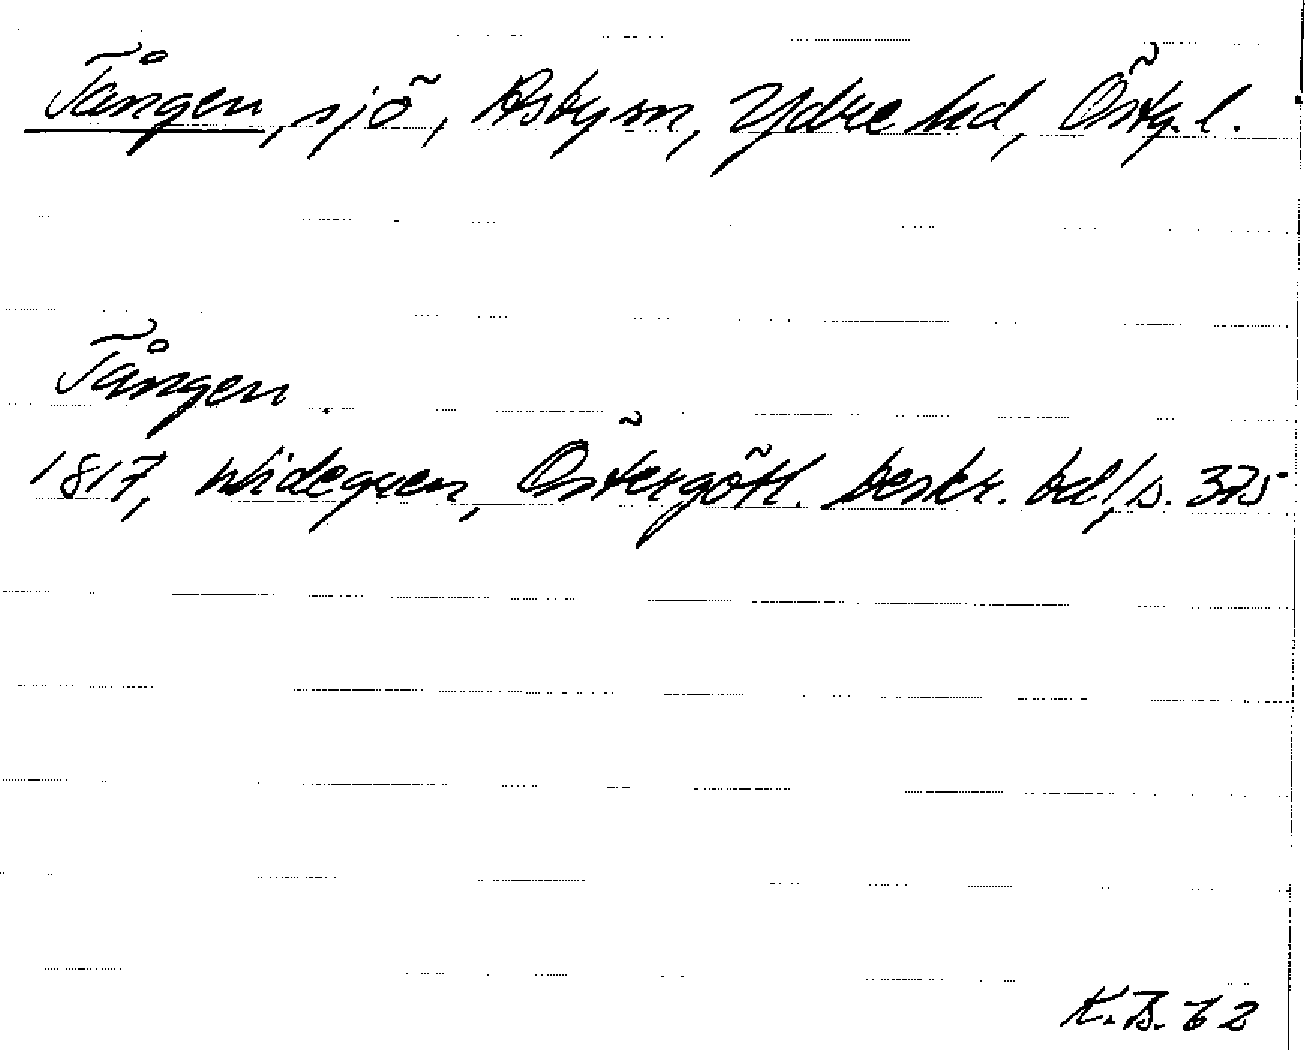 Tången, sjö, Asby sn, Ydre hd, Östg. l.
Tången.
1817, Widegren, Östergötl. beskr. bd 1, s. 375
K.B. 62